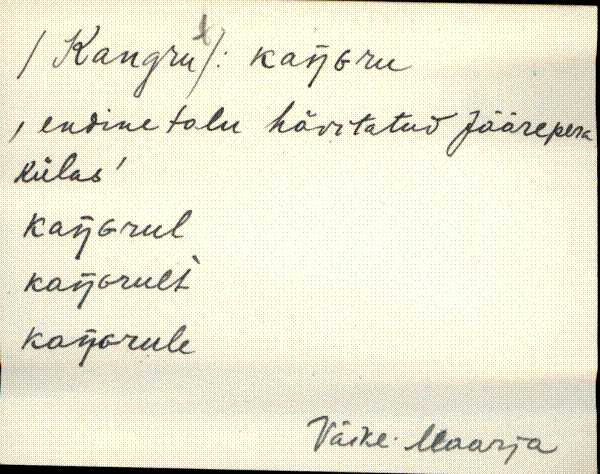 / Kangru x /: kaŋɢru
, endine talu hävitatud Jäärepera
külas'
kaŋɢrul
kaŋɢrult
kaŋɢrule
Väike-Maarja